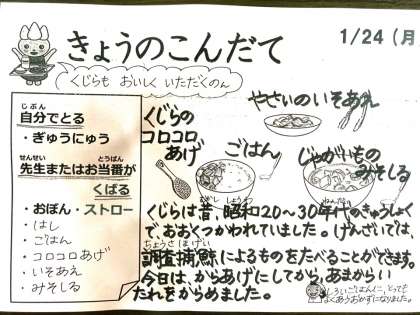 きょうのこんだて
1/24 (月
くじらも おいしく いただくのん
じぶん
自分でとる
・ぎゅうにゅう
せんせい とうばん
先生またはお当番が
くばる
・おぼん・ストロー
・はし
・ごはん
・コロコロあげ
・いそあえ
・みそしる
くじらの
コロコロ
あげ
やさいのいそあえ
ごはん
じゃがいもの
みそしる
くじらは昔、昭和20~30年代のきゅうしょく
で、おおくつかわれていました。げんざいでは、
ちょうさほげい
調査捕鯨によるものをたべることができます。
今日は、からあげにしてから、あまからい
たれをからめました。
しろいごはんに、とっても
よくあうおかずになりました。